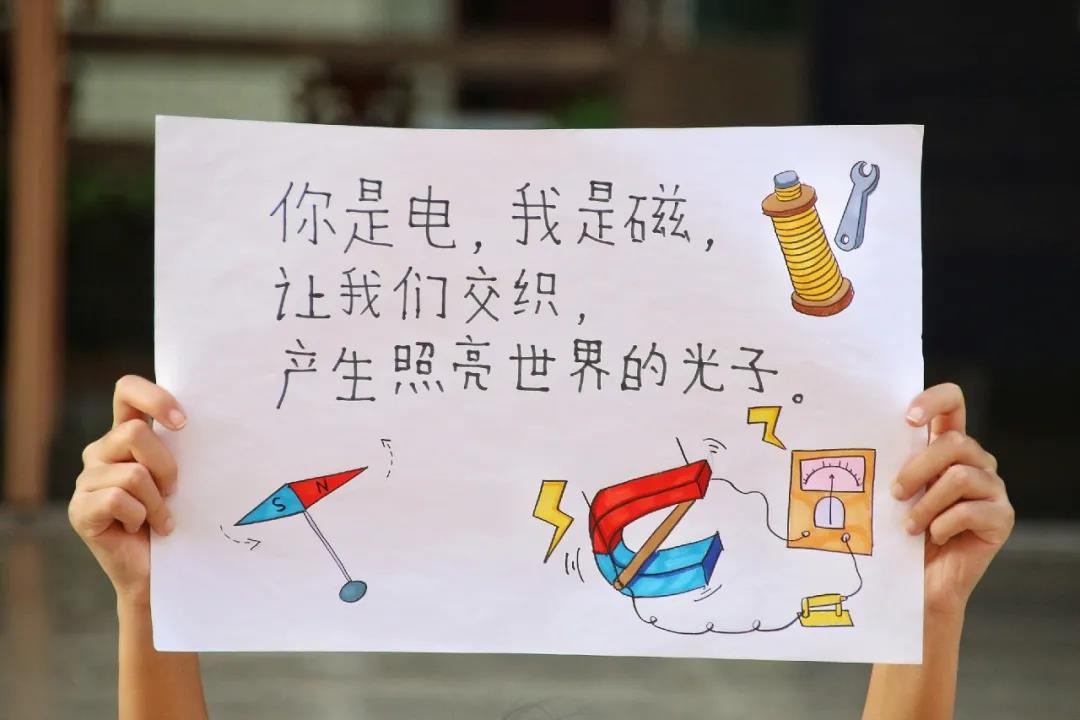 你是电，我是磁，
让我们交织，
产生照亮世界的光子。
S N